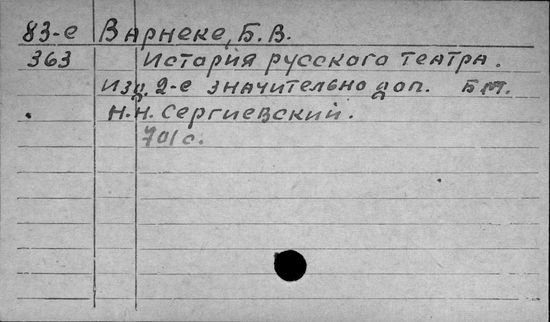 83-е Варнеке, Б.В.
363 История русского театра.
Изд. 2-е значительно доп. Б.м.
Н.Н. Сергиевский.
701 с.